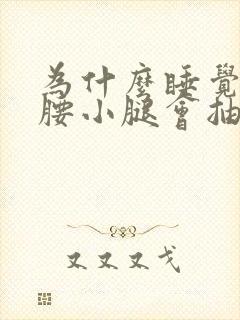 為什麼睡覺
腰小腿會抽
又又又戈